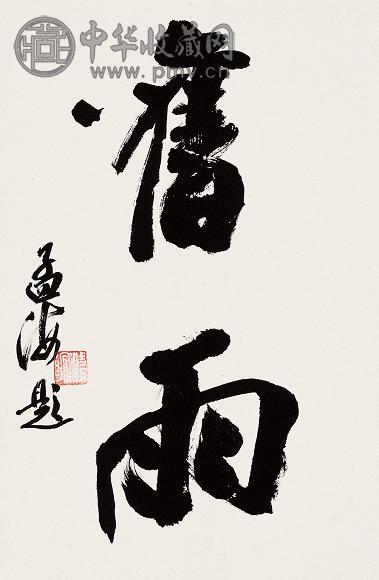 中华收藏网
www.pmv.cn
舊雨
孟海題